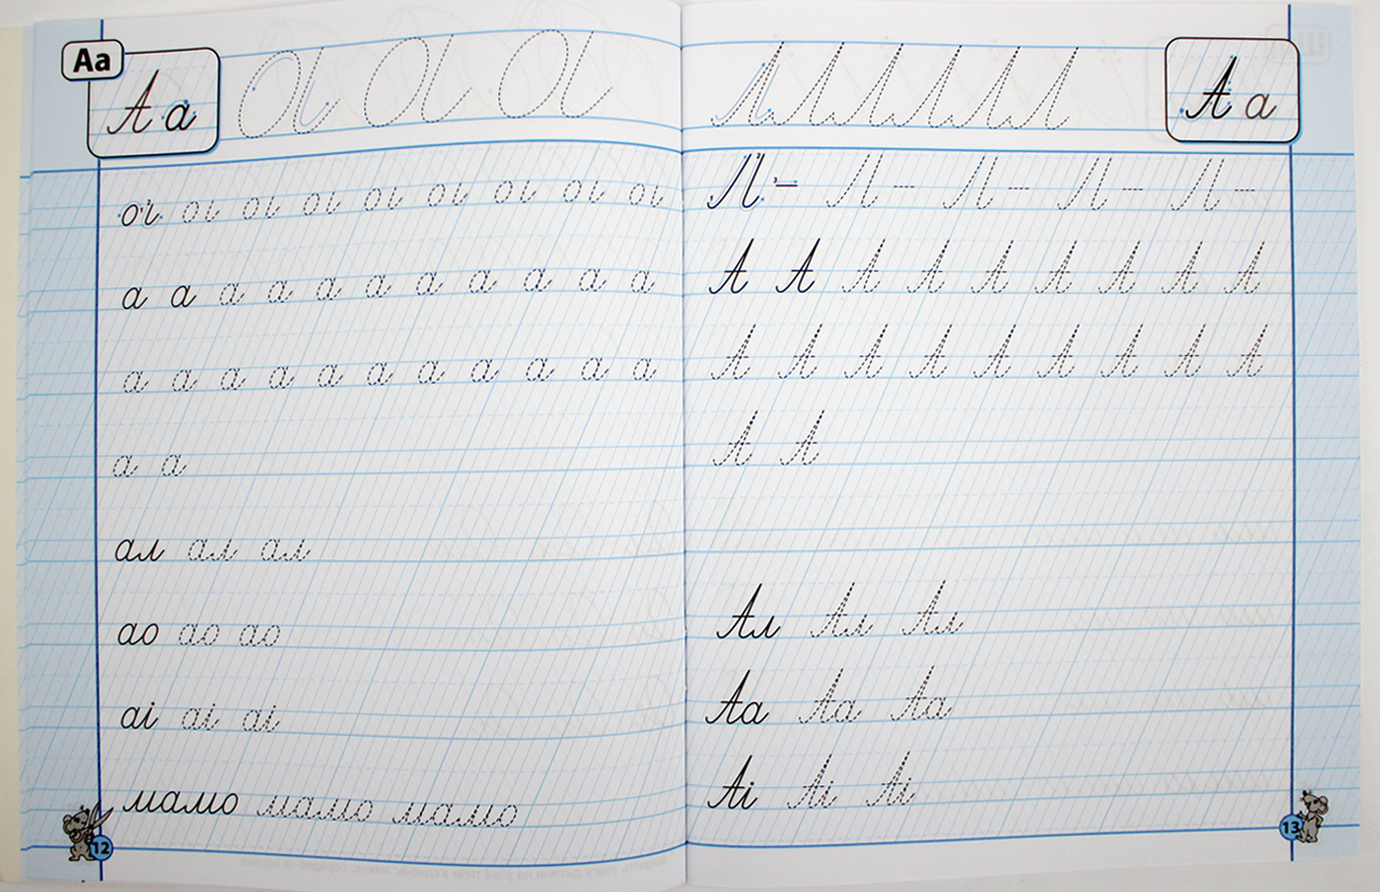 Аа
А а
а а а а а а а а а а а
а а а а а а а а а а а
а а
ал ал ал
ао ао ао
аі аі аі
мамо мамо мамо
12
А а
А А А А А А А А А
А А А А А А А А А
А А
Ал Ал Ал
Аа Аа Аа
Аі Аі Аі
13